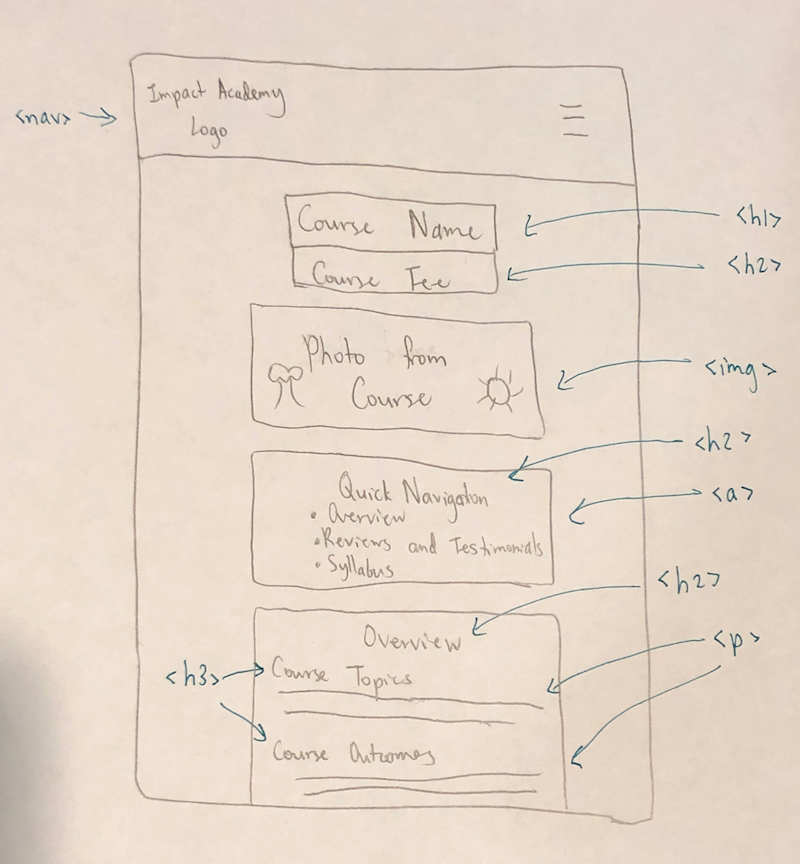 Impact Academy
Logo
<nav>
Course Name
<h1>
Course Fee
<h2>
Photo from
Course
<img>
<h2>
Quick Navigation
<a>
• Overview
• Reviews and Testimonials
• Syllabus
<h2>
Overview
<p>
<h3>
Course Topics
Course Outcomes